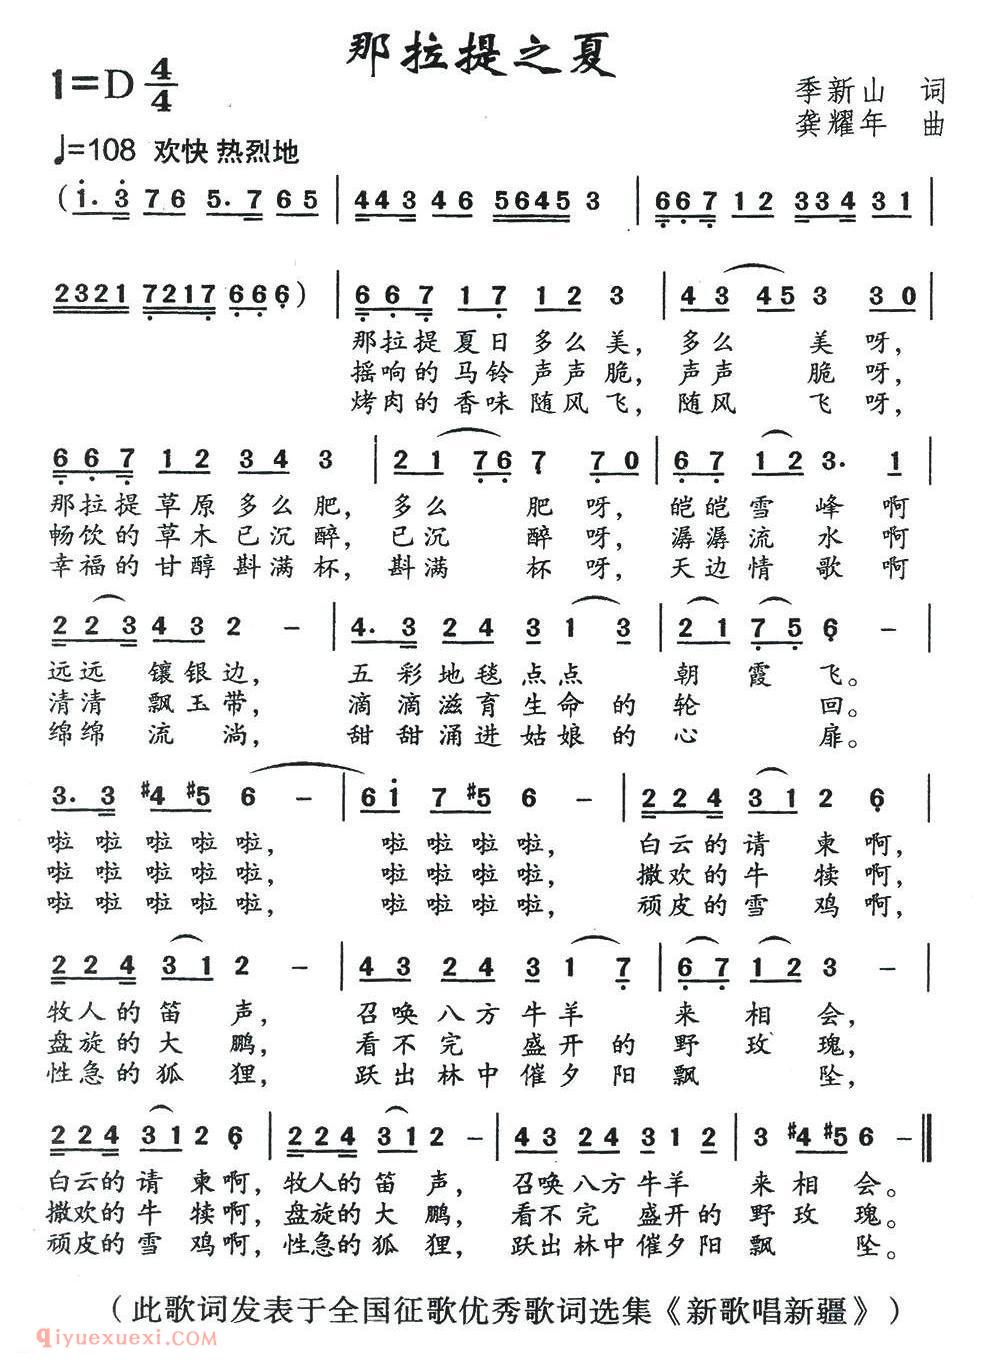 那拉提之夏
1=D 4/4
季新山 词
龚耀年 曲
♩=108 欢快 热烈地
( 1· 3 7 6 5· 7 6 5 | 4 4 3 4 6 5 6 4 5 3 | 6 6 7 1 2 3 3 4 3 1 |
2 3 2 1 7 2 1 7 6 6 6 ) | 6 6 7 1 7 1 2 3 | 4 3 4 5 3 3 0 |
那拉提 夏日 多么 美, 多么 美 呀,
摇响的 马铃 声声 脆, 声声 脆 呀,
烤肉的 香味 随风 飞, 随风 飞 呀,
6 6 7 1 2 3 4 3 | 2 1 7 6 7 7 0 | 6 7 1 2 3· 1
那拉提 草原 多么 肥, 多么 肥 呀, 皑皑 雪 峰 啊
畅饮的 草木 已沉 醉, 已沉 醉 呀, 潺潺 流 水 啊
幸福的 甘醇 斟满 杯, 斟满 杯 呀, 天边 情 歌 啊
2 2 3 4 3 2 - | 4· 3 2 4 3 1 3 | 2 1 7 5 6 - |
远远 镶银边, 五彩地毯点点 朝 霞 飞。
清清 飘玉带, 滴滴滋育生命的 轮 回。
绵绵 流 淌, 甜甜涌进姑娘的 心 扉。
3· 3 #4 #5 6 - | 6 1 7 #5 6 - | 2 2 4 3 1 2 6 |
啦 啦 啦 啦 啦, 啦 啦 啦 啦, 白云的 请 柬 啊,
啦 啦 啦 啦 啦, 啦 啦 啦 啦, 撒欢的 牛 犊 啊,
啦 啦 啦 啦 啦, 啦 啦 啦 啦, 顽皮的 雪 鸡 啊,
2 2 4 3 1 2 - | 4 3 2 4 3 1 7 | 6 7 1 2 3 - |
牧人的 笛 声, 召唤八方牛羊 来 相 会,
盘旋的 大 鹏, 看不完 盛开的 野 玫 瑰,
性急的 狐 狸, 跃出林中催夕阳 飘 坠,
2 2 4 3 1 2 6 | 2 2 4 3 1 2 - | 4 3 2 4 3 1 2 | 3 #4 #5 6 - ‖
白云的 请 柬啊, 牧人的 笛 声, 召唤八方牛羊 来 相 会。
撒欢的 牛 犊啊, 盘旋的 大 鹏, 看不完 盛开的 野 玫 瑰。
顽皮的 雪 鸡啊, 性急的 狐 狸, 跃出林中催夕阳 飘 坠。
(此歌词发表于全国征歌优秀歌词选集《新歌唱新疆》)
qiyuexuexi.com